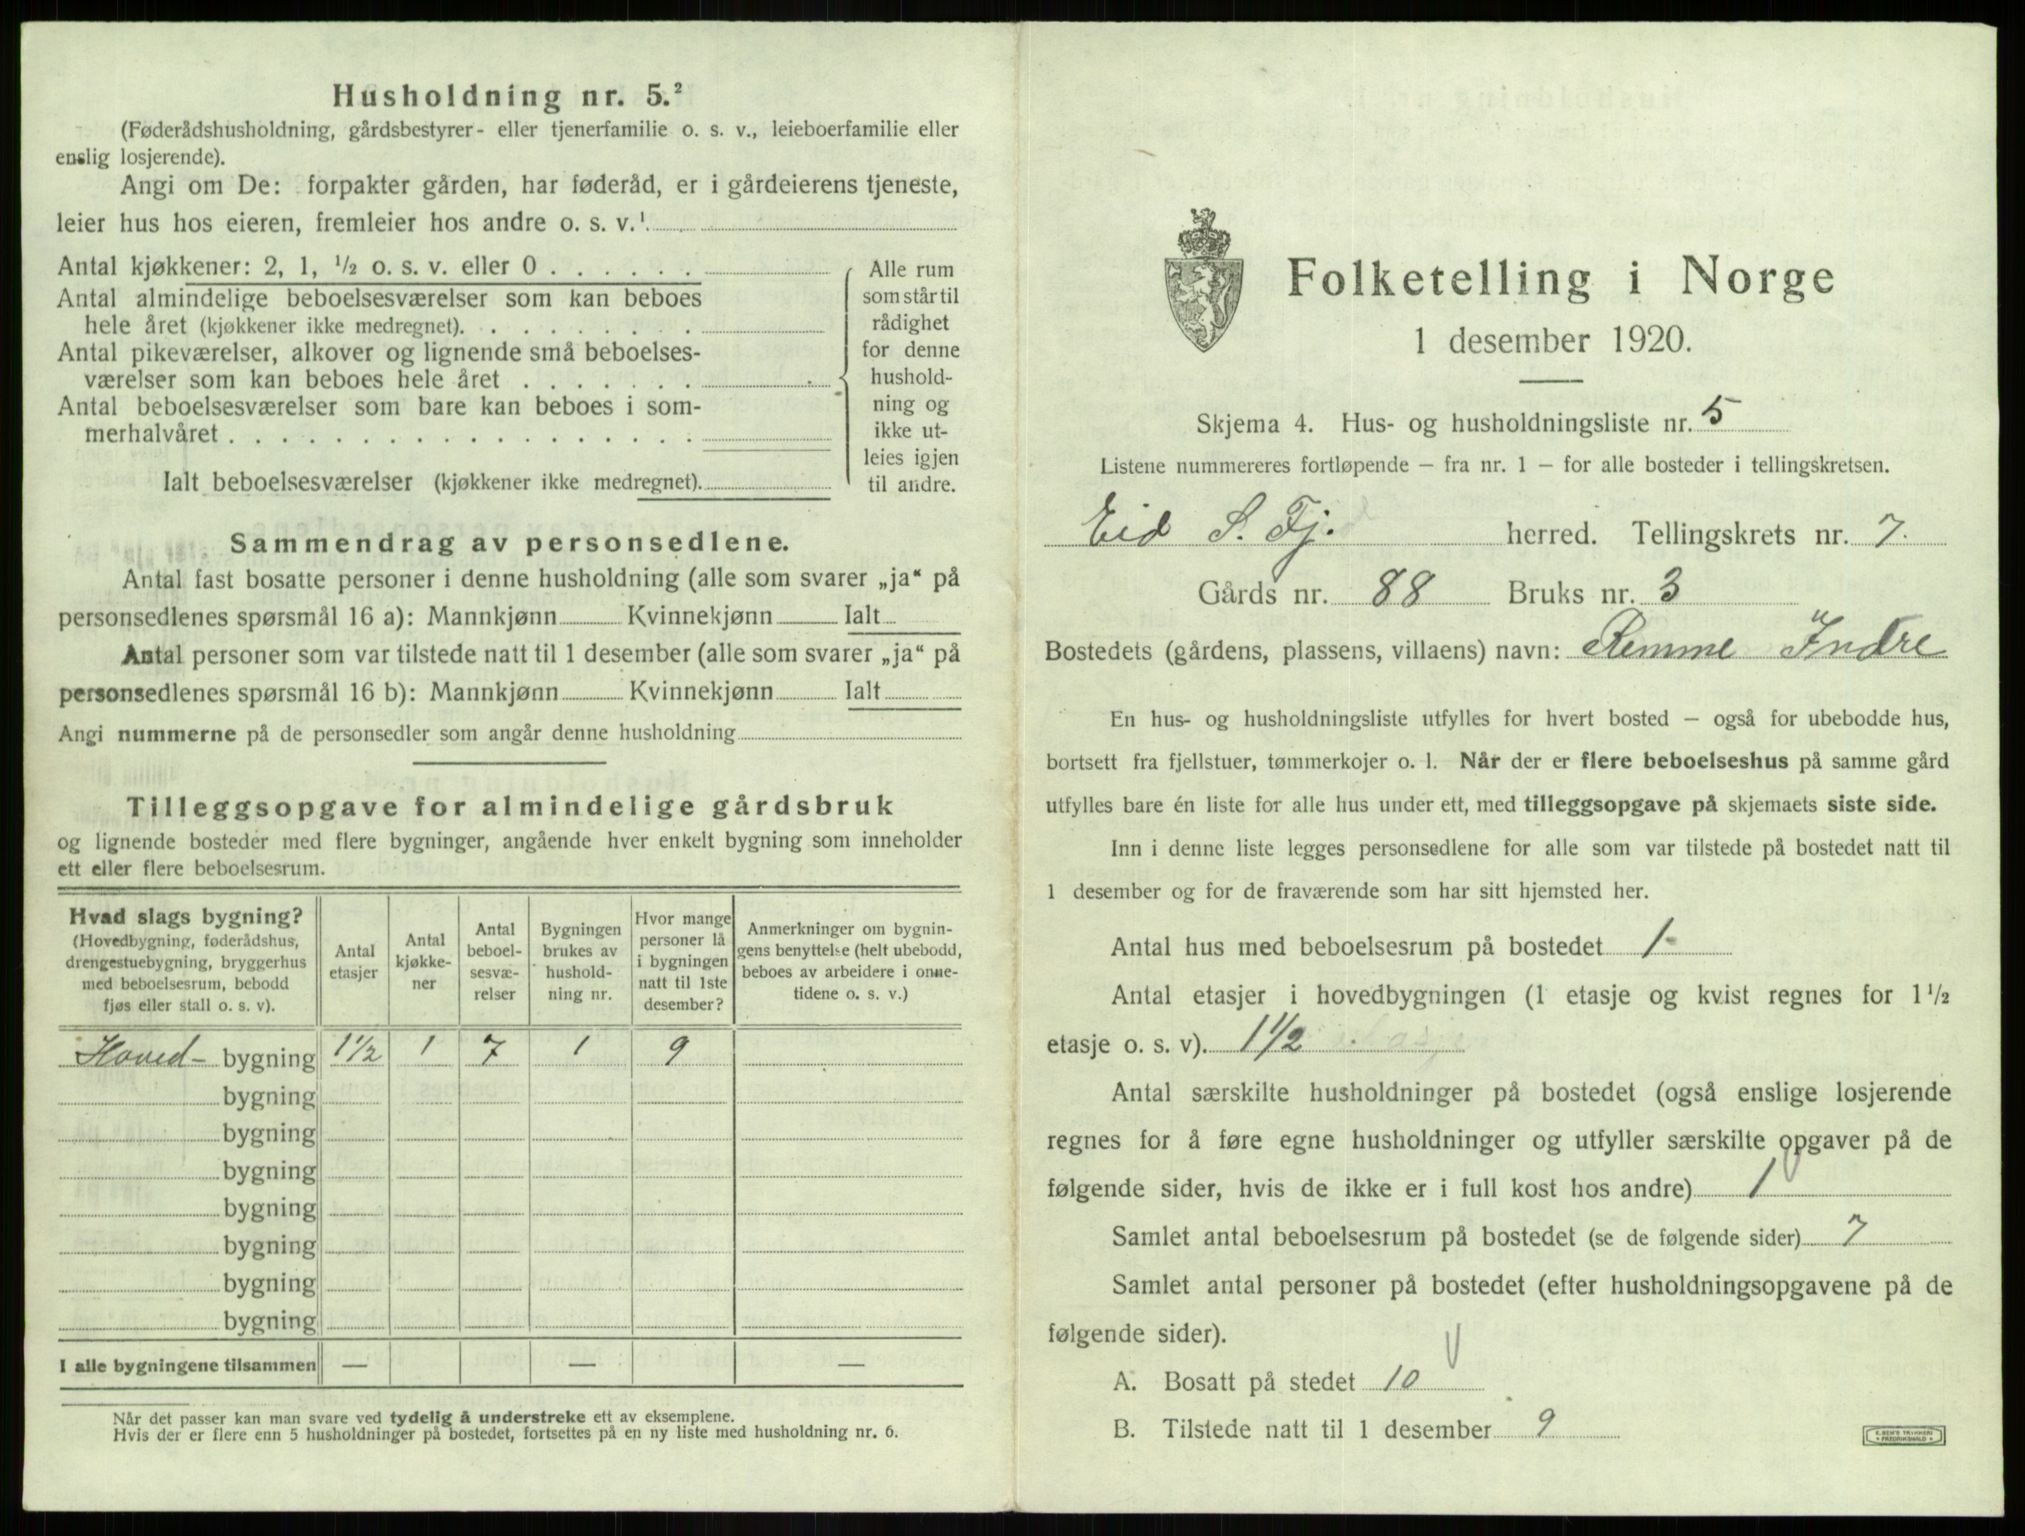 Husholdning nr. 5.²
(Føderådshusholdning, gårdsbestyrer- eller tjenerfamilie o. s. v., leieboerfamilie eller
enslig losjerende).
Angi om De: forpakter gården, har føderåd, er i gårdeierens tjeneste,
leier hus hos eieren, fremleier hos andre o. s. v.¹
Antal kjøkkener: 2, 1, ½ o. s. v. eller 0 . . . . . .
Antal almindelige beboelsesværelser som kan beboes
hele året (kjøkkener ikke medregnet). . . . . . . . .
Antal pikeværelser, alkover og lignende små beboelses-
værelser som kan beboes hele året . . . . . . .
Antal beboelsesværelser som bare kan beboes i som-
merhalvåret . . . . . . . . . . . . . . . . . .
Ialt beboelsesværelser (kjøkkener ikke medregnet).
Alle rum
som står til
rådighet
for denne
hushold-
ning og
ikke ut-
leies igjen
til andre.
Sammendrag av personsedlene.
Antal fast bosatte personer i denne husholdning (alle som svarer „ja“ på
personsedlenes spørsmål 16 a): Mannkjønn Kvinnekjønn Ialt
Antal personer som var tilstede natt til 1 desember (alle som svarer „ja“ på
personsedlenes spørsmål 16 b): Mannkjønn Kvinnekjønn Ialt
Angi nummerne på de personsedler som angår denne husholdning
Tilleggsopgave for almindelige gårdsbruk
og lignende bosteder med flere bygninger, angående hver enkelt bygning som inneholder
ett eller flere beboelsesrum.
Hvad slags bygning?
(Hovedbygning, føderådshus,
drengestuebygning, bryggerhus
med beboelsesrum, bebodd
fjøs eller stall o. s. v).
Antal
etasjer
Antal
kjøkke-
ner
Antal
beboel-
sesvæ-
relser
Bygningen
brukes av
hushold-
ning nr.
Hvor mange
personer lå
i bygningen
natt til 1ste
desember?
Anmerkninger om bygnin-
gens benyttelse (helt ubebodd,
beboes av arbeidere i onne-
tidene o. s. v.)
Hoved- bygning 1½ 1 7 1 9
bygning
bygning
bygning
bygning
bygning
bygning
bygning
I alle bygningene tilsammen — — —
Når det passer kan man svare ved tydelig å understreke ett av eksemplene.
Hvis der er flere enn 5 husholdninger på bostedet, fortsettes på en ny liste med husholdning nr. 6.
Folketelling i Norge
1 desember 1920.
Skjema 4. Hus- og husholdningsliste nr. 5
Listene nummereres fortløpende – fra nr. 1 – for alle bosteder i tellingskretsen.
Eid S. Fj. herred. Tellingskrets nr. 7.
Gårds nr. 88 Bruks nr. 3
Bostedets (gårdens, plassens, villaens) navn: Remme Indre
En hus- og husholdningsliste utfylles for hvert bosted – også for ubebodde hus,
bortsett fra fjellstuer, tømmerkojer o. l. Når der er flere beboelseshus på samme gård
utfylles bare én liste for alle hus under ett, med tilleggsopgave på skjemaets siste side.
Inn i denne liste legges personsedlene for alle som var tilstede på bostedet natt til
1 desember og for de fraværende som har sitt hjemsted her.
Antal hus med beboelsesrum på bostedet 1-
Antal etasjer i hovedbygningen (1 etasje og kvist regnes for 1½
etasje o. s. v). 1½
Antal særskilte husholdninger på bostedet (også enslige losjerende
regnes for å føre egne husholdninger og utfyller særskilte opgaver på de
følgende sider, hvis de ikke er i full kost hos andre) 1
Samlet antal beboelsesrum på bostedet (se de følgende sider) 7
Samlet antal personer på bostedet (efter husholdningsopgavene på de
følgende sider).
A. Bosatt på stedet 10
B. Tilstede natt til 1 desember 9